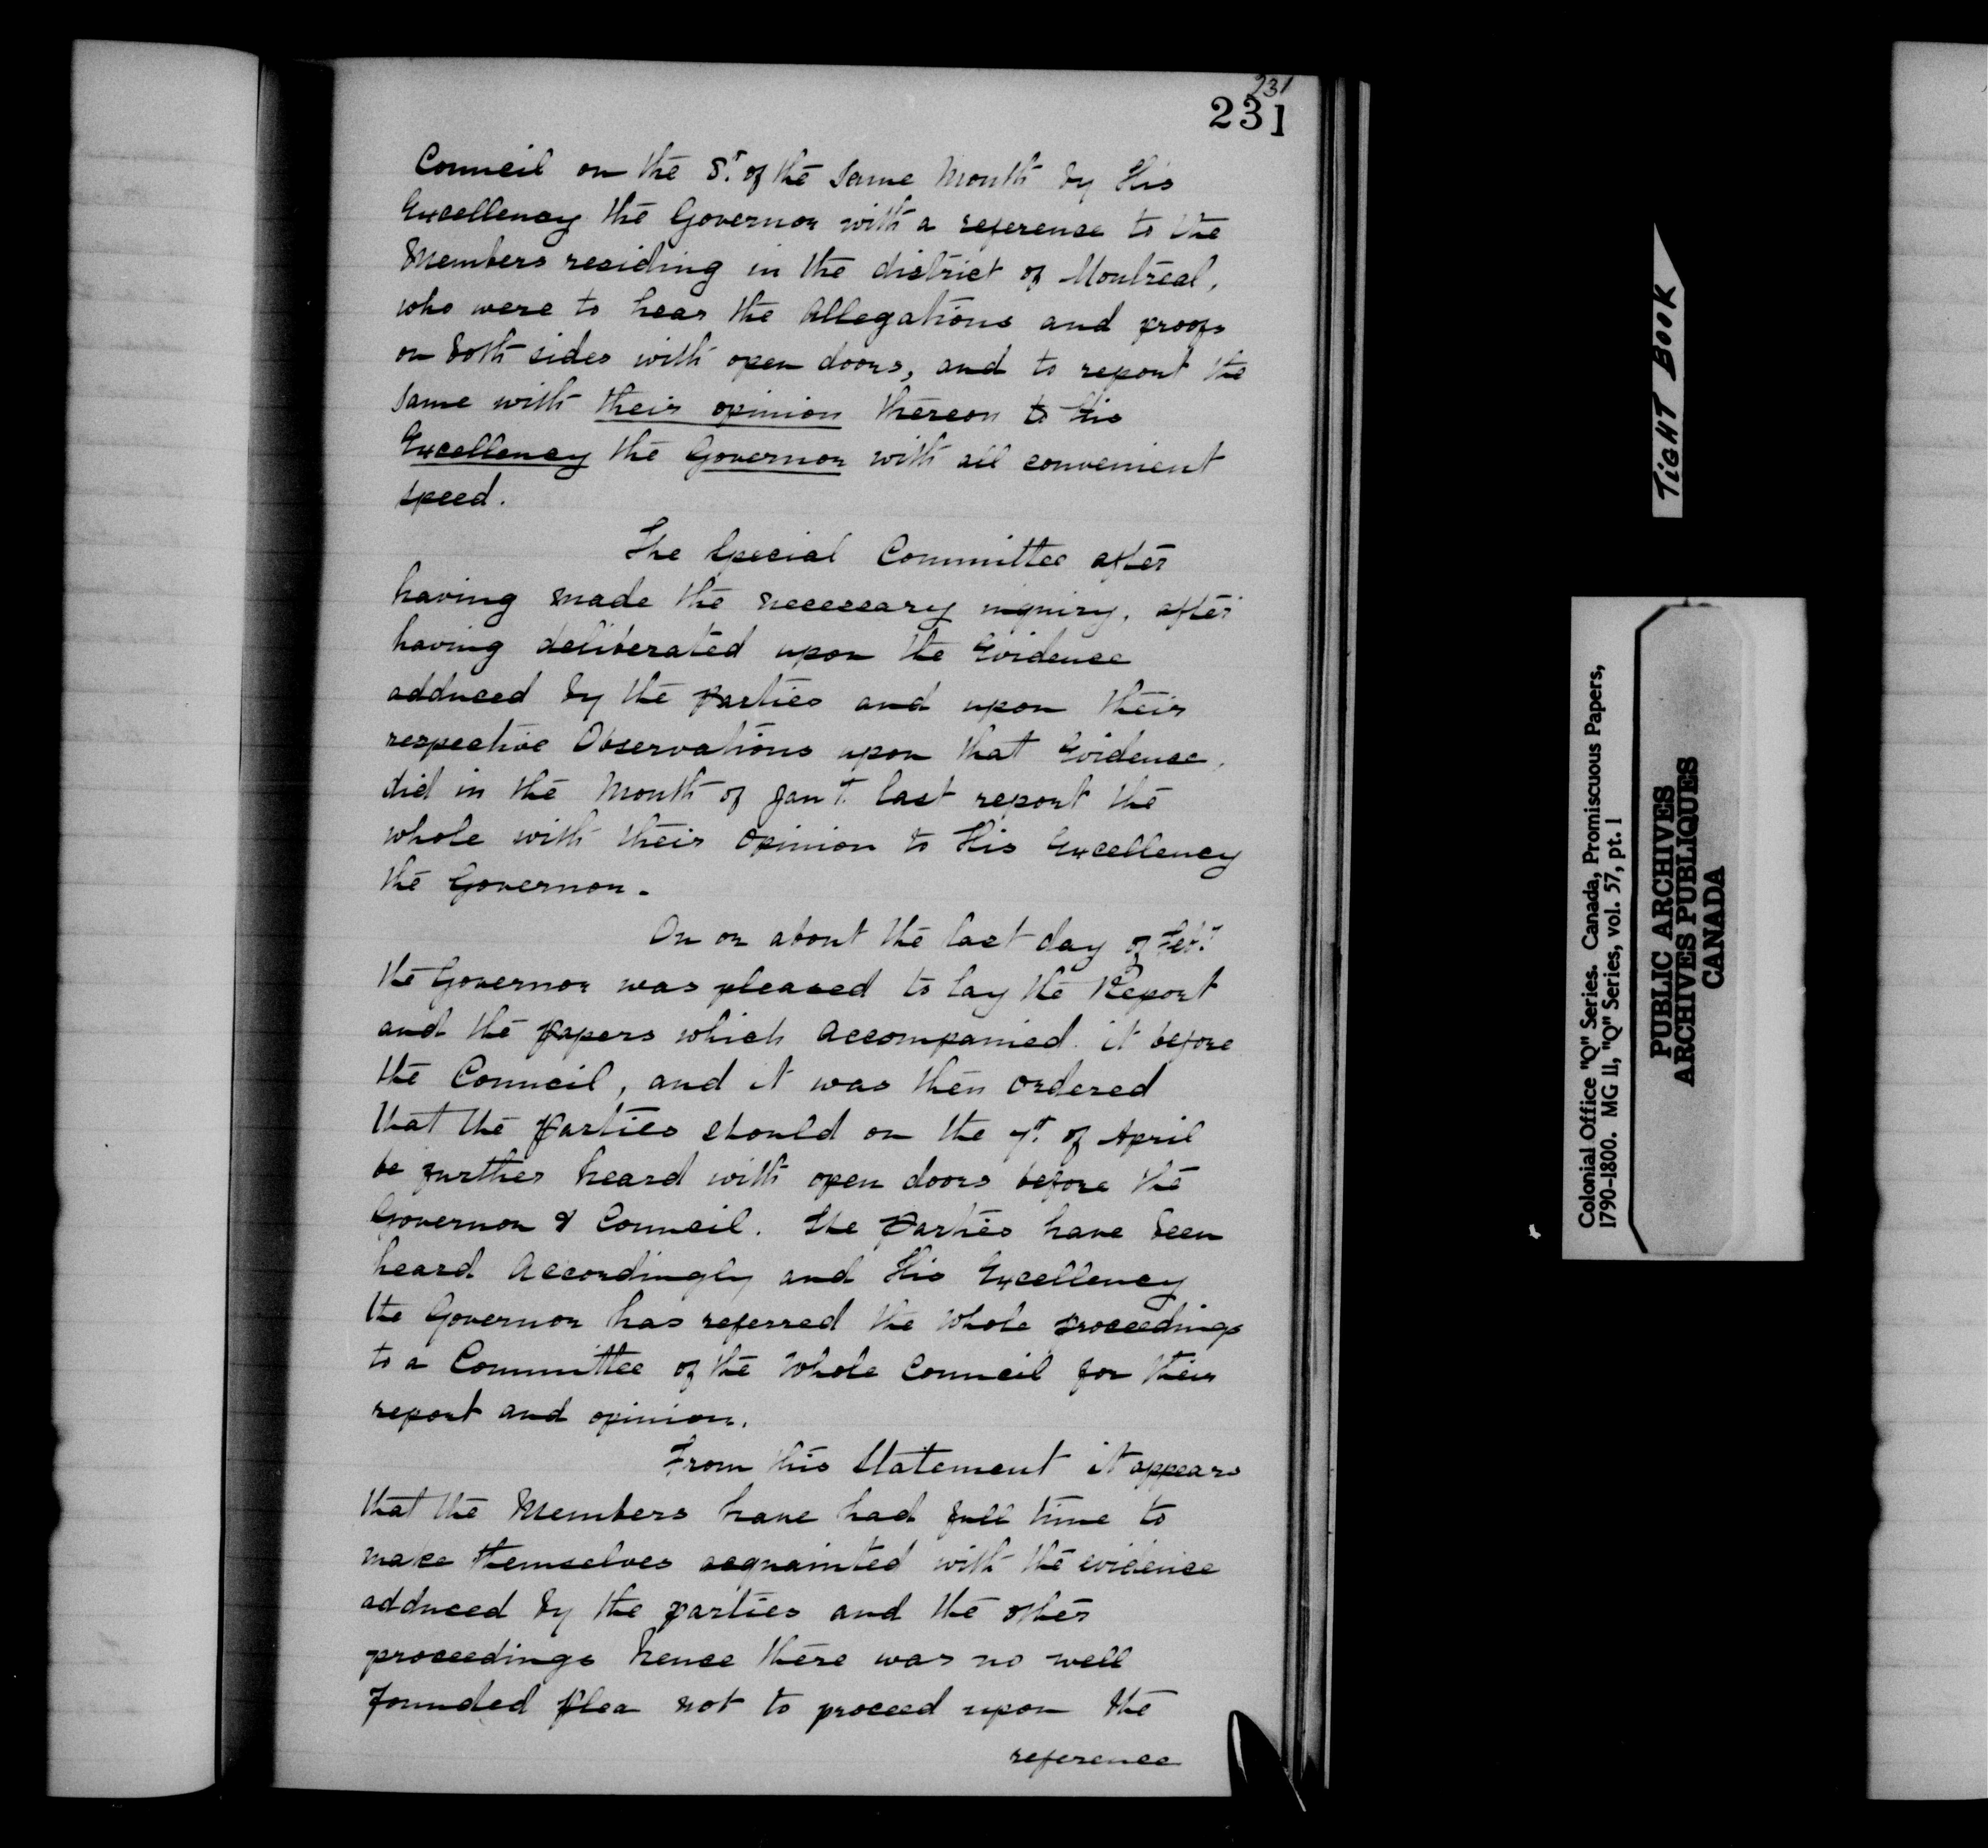 231
231
Council on the 8th. of the same Month by His
Excellency the Governor with a reference to the
Members residing in the district of Montreal,
who were to hear the Allegations and proofs
on both sides with open doors, and to report the
same with their opinion thereon to His
Excellency the Governor with all convenient
speed.
The Special Committee after
having made the necessary inquiry, after
having deliberated upon the Evidence
adduced by the Parties and upon their
respective Observations upon that Evidence,
did in the Month of Jany. last report the
whole with their Opinion to His Excellency
the Governor.
On or about the last day of Feby.
the Governor was pleased to lay the Report
and the papers which accompanied it before
the Council, and it was then ordered
that the Parties should on the 7th. of April
be further heard with open doors before the
Governor & Council. The Parties have been
heard Accordingly and His Excellency
the Governor has referred the whole proceedings
to a Committee of the Whole Council for their
report and opinion.
From this Statement it appears
that the Members have had full time to
make themselves acquainted with the evidence
adduced by the parties and the other
proceedings hence there was no well
founded plea not to proceed upon the
reference
TIGHT BOOK
Colonial Office "Q" Series. Canada, Promiscuous Papers,
1790-1800. MG 11, "Q" Series, vol. 57, pt. 1
PUBLIC ARCHIVES
ARCHIVES PUBLIQUES
CANADA